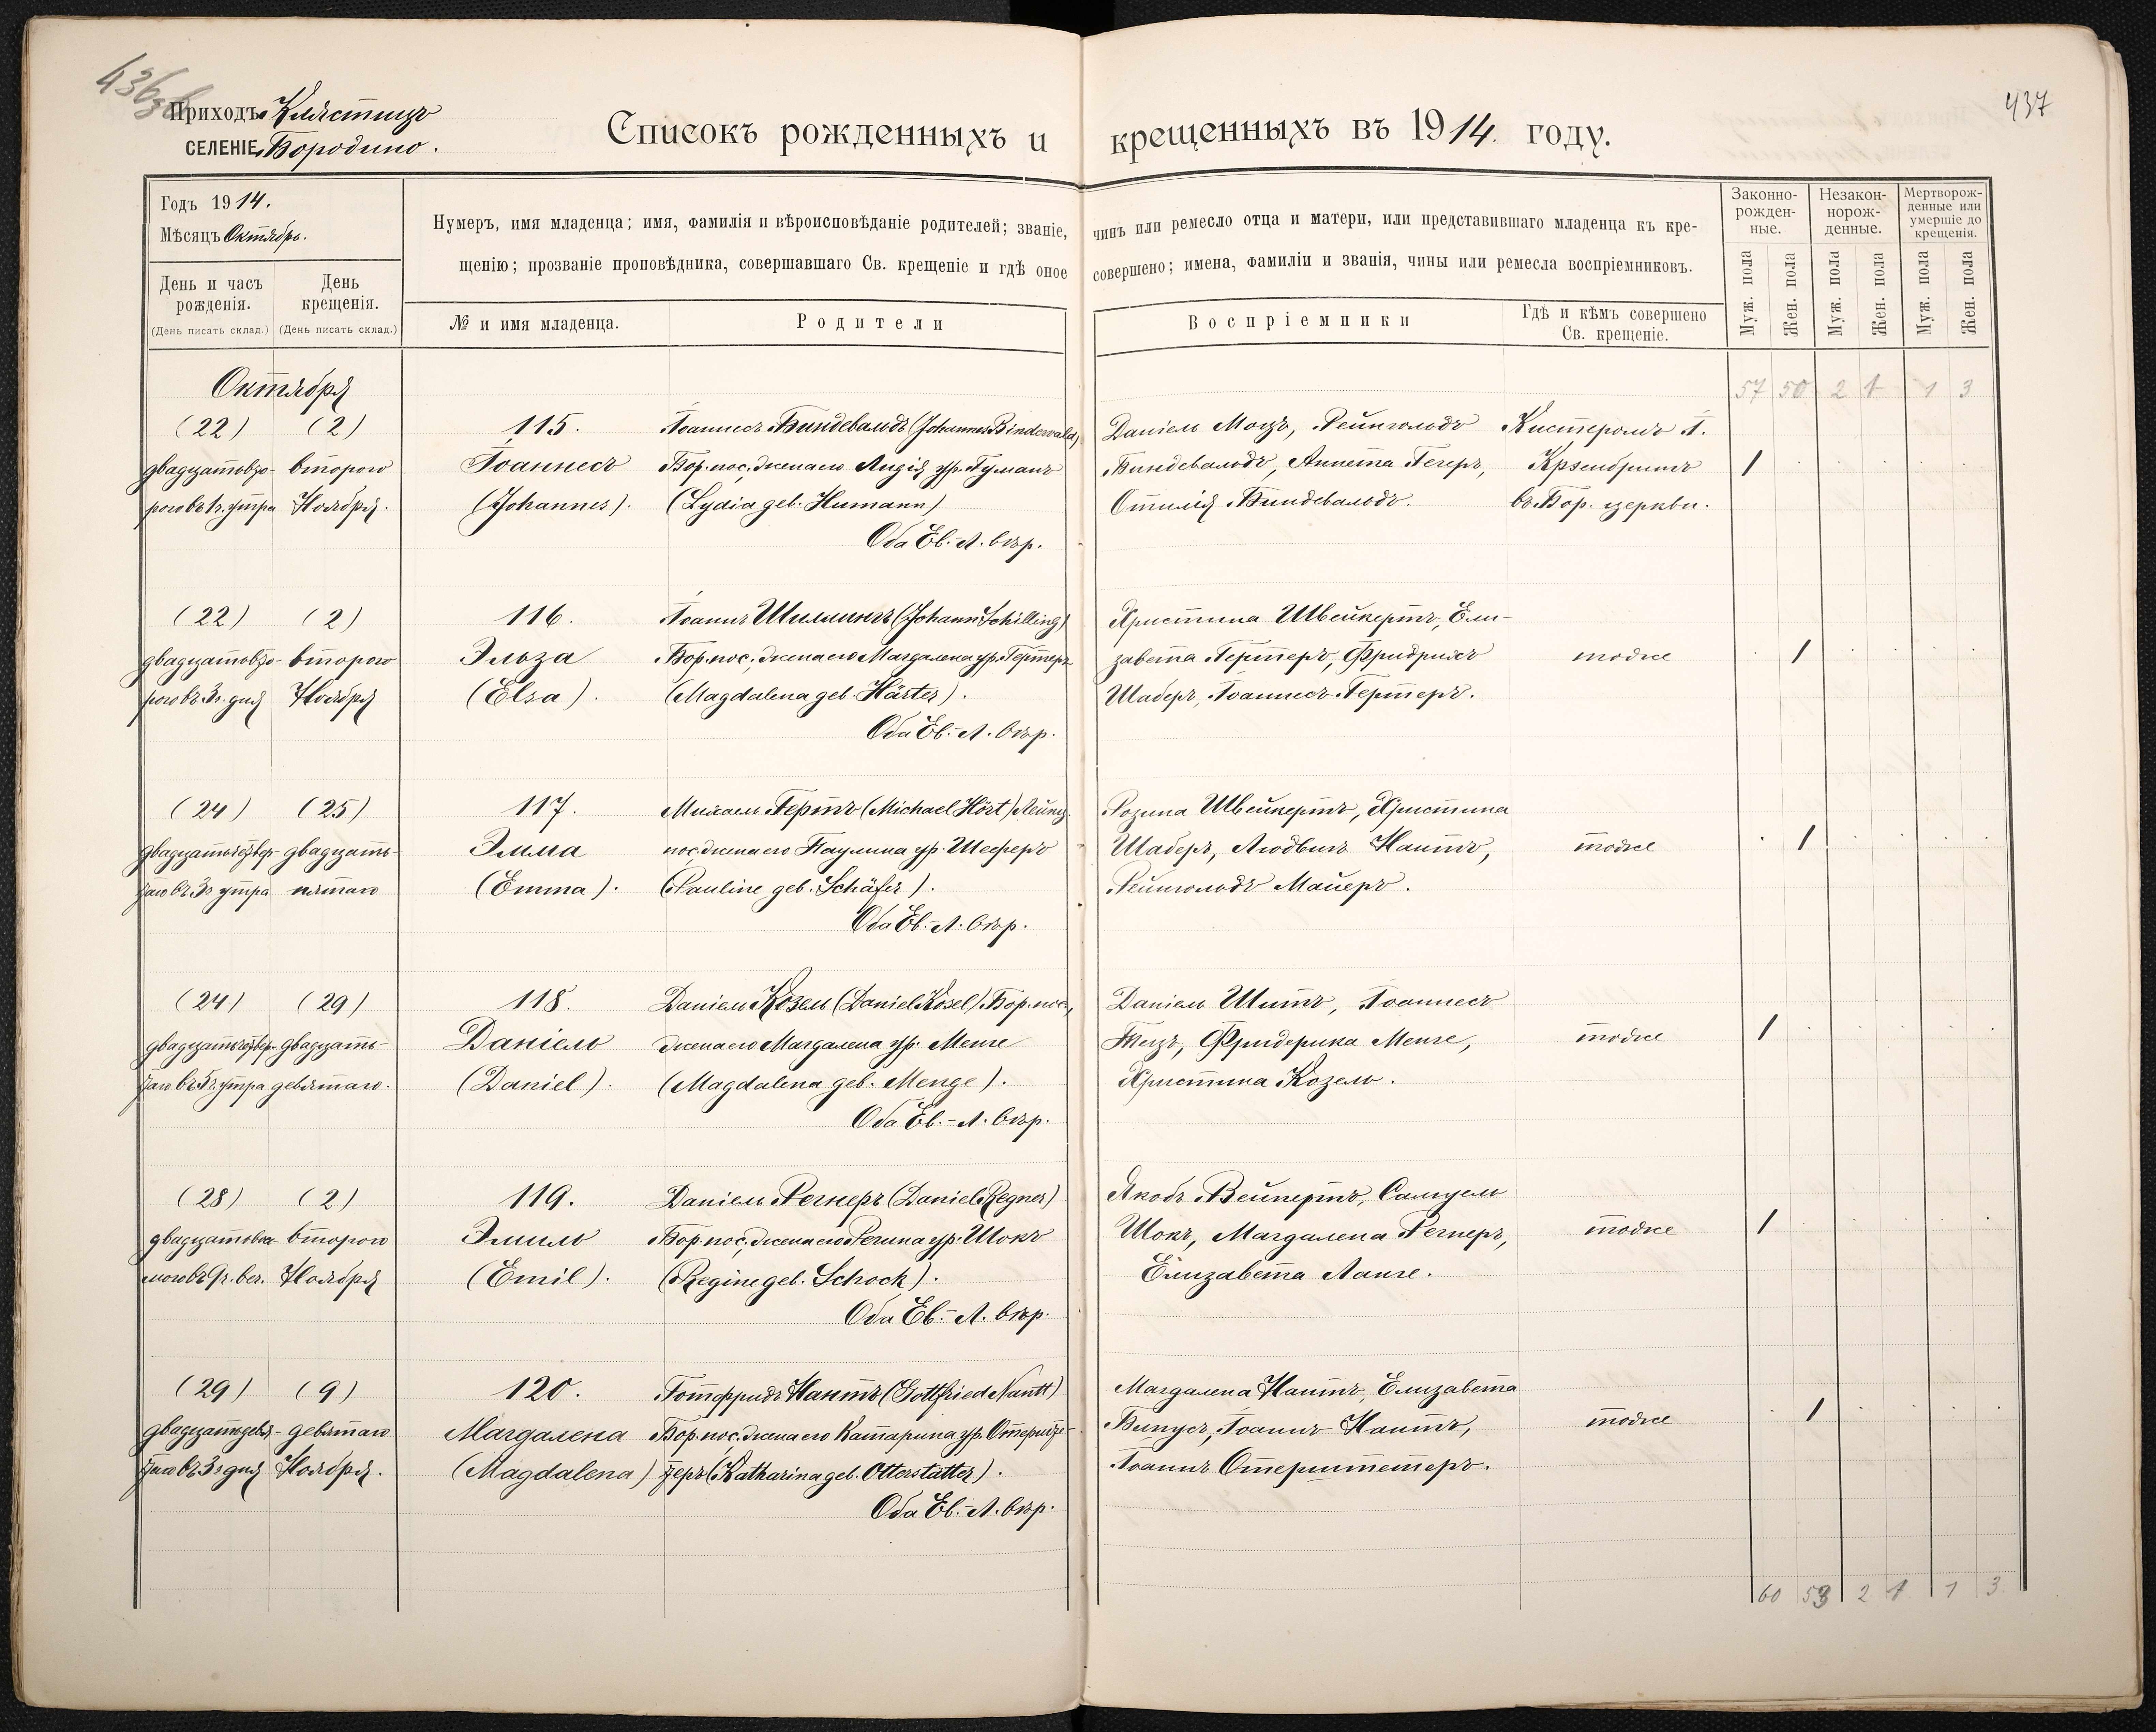 436
437
Приходъ Клястицъ
СЕЛЕНІЕ Бородино.
Списокъ рожденныхъ и крещенныхъ въ 1914. году.
Годъ 1914.
Мѣсяцъ Октябрь.
День и часъ рожденія.
(День писать склад.)
День крещенія.
(День писать склад.)
Нумеръ, имя младенца; имя, фамилія и вѣроисповѣданіе родителей; званіе, чинъ или ремесло отца и матери, или представившаго младенца къ кре-
щенію; прозваніе проповѣдника, совершавшаго Св. крещеніе и гдѣ оное совершено; имена, фамиліи и званія, чины или ремесла воспріемниковъ.
№ и имя младенца.
Родители
Воспріемники
Гдѣ и кѣмъ совершено
Св. крещеніе.
Законно-
рожден-
ные.
Незакон-
норож-
денные.
Мертворож-
денные или
умершіе до
крещенія.
Муж. пола
Жен. пола
Муж. пола
Жен. пола
Муж. пола
Жен. пола
Октября
57 50 2 1 1 3
(22) (2) 115. Іоаннесъ Биндевальдъ (Johannes Binderwald) Даніель Моцъ, Рейнгольдъ Кистеромъ Л.
двадцатовто- второго Іоаннесъ Бор. пос., жена его Лидія ур. Гуманъ Биндевальдъ, Аннета Гегеръ, въ Бор. церкви.
рого въ 1 ч. утра Ноября. (Johannes). (Lydia geb. Humann) Отилія Биндевальдъ. 1
Оба Ев.-Л. вѣр.
(22) (2) 116. Іоаннъ Шиллингъ (Johann Schilling) Христина Швейкертъ, Ели-
двадцатовто- второго Эльза Бор. пос., жена его Магдалена ур. Гертеръ завета Гертеръ, Фридрихъ тоже 1
рого въ 3 ч. дня Ноября (Elsa). (Magdalena geb. Härter). Шаберъ, Іоаннесъ Гертеръ.
Оба Ев.-Л. вѣр.
(24) (25) 117. Михаелъ Гертъ (Michael Hört) Лейпц. Розина Швейкертъ, Христина
двадцатьчетвер- двадцать- Эмма пос., жена его Паулина ур. Шеферъ Шаберъ, Людвигъ Наутъ, тоже 1
таго въ 3 ч утра пятаго (Emma). (Pauline geb. Schäfer). Рейнгольдъ Майеръ.
Оба Ев.-Л. вѣр.
(24) (29) 118. Даніель Козель (Daniel Kosel) Бор. пос., Даніель Шиттъ, Іоаннесъ
двадцатьчетвер- двадцать- Даніель жена его Магдалена ур. Менге Фридерика Менге, тоже 1
таго въ 5 ч. утра девятаго. (Daniel). (Magdalena geb. Menge). Христина Козель.
Оба Ев.-Л. вѣр.
(28) (2) 119. Даніель Регнеръ (Daniel Regner) Якобъ Вейнертъ, Самуель
двадцатовось- второго Эмиль Бор. пос., жена его Регина ур. Шокъ Шокъ, Магдалена Регнеръ, тоже 1
мого въ 9 ч. веч. Ноября (Emil). (Regine geb. Schock). Елизавета Ланге.
Оба Ев.-Л. вѣр.
(29) (9) 120. Готфридъ Нантъ (Gottfried Nantt) Магдалена Наитъ, Елизавета
двадцатодевя- девятаго Магдалена Бор. пос., жена его Катарина ур. Отерште- Іоаннъ Наитъ, тоже 1
таго въ 3 ч дня Ноября. (Magdalena) теръ (Katharina geb. Otterstätter). Іоаннъ Отерштетеръ.
Оба Ев.-Л. вѣр.
60 53 2 1 1 3